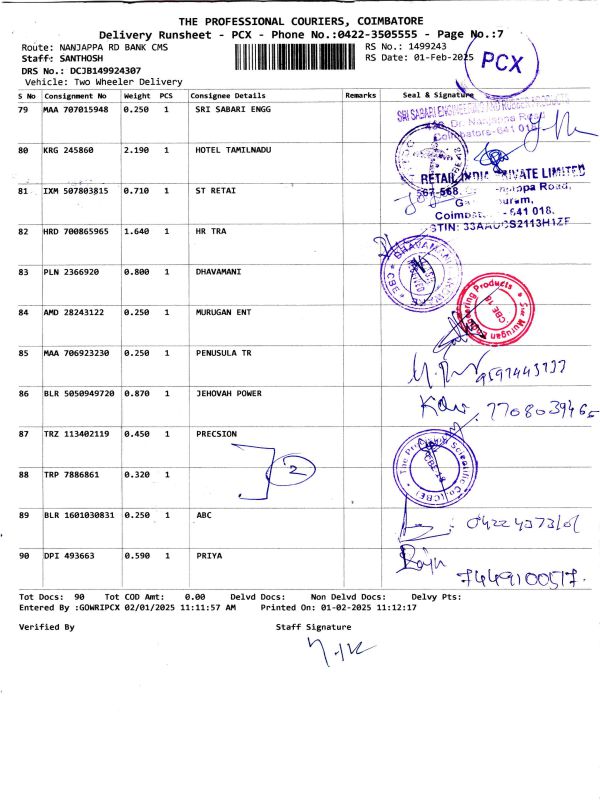 THE PROFESSIONAL COURIERS, COIMBATORE
Delivery Runsheet - PCX - Phone No.:0422-3505555 - Page No.:7
Route: NANJAPPA RD BANK CMS
RS No.: 1499243
Staff: SANTHOSH
RS Date: 01-Feb-2025
DRS No.: DCJB149924307
Vehicle: Two Wheeler Delivery
PCX
S No Consignment No Weight PCS Consignee Details Remarks Seal & Signature
79 MAA 707015948 0.250 1 SRI SABARI ENGG
SRI SABARI ENGINEERING AND RUBBER PRODUCTS
Dr. Nanjappa Road
Coimbatore-641 018
80 KRG 245860 2.190 1 HOTEL TAMILNADU
RETAIL INDIA PRIVATE LIMITED
81 IXM 507803815 0.710 1 ST RETAI
567-568, Nanjappa Road,
Coimbat - 641 018.
GSTIN: 33AAUCS2113H1ZF
82 HRD 700865965 1.640 1 HR TRA
83 PLN 2366920 0.800 1 DHAVAMANI
84 AMD 28243122 0.250 1 MURUGAN ENT
Sree Murugan Engineering Products
CBE 18
85 MAA 706923230 0.250 1 PENUSULA TR
86 BLR 5050949720 0.870 1 JEHOVAH POWER
87 TRZ 113402119 0.450 1 PRECSION
The Precision Scientific Co (CBE)
CBE-18
2
88 TRP 7886861 0.320 1
89 BLR 1601030831 0.250 1 ABC
90 DPI 493663 0.590 1 PRIYA
7449100517
Tot Docs: 90 Tot COD Amt: 0.00 Delvd Docs: Non Delvd Docs: Delvy Pts:
Entered By :GOWRIPCX 02/01/2025 11:11:57 AM Printed On: 01-02-2025 11:12:17
Verified By Staff Signature